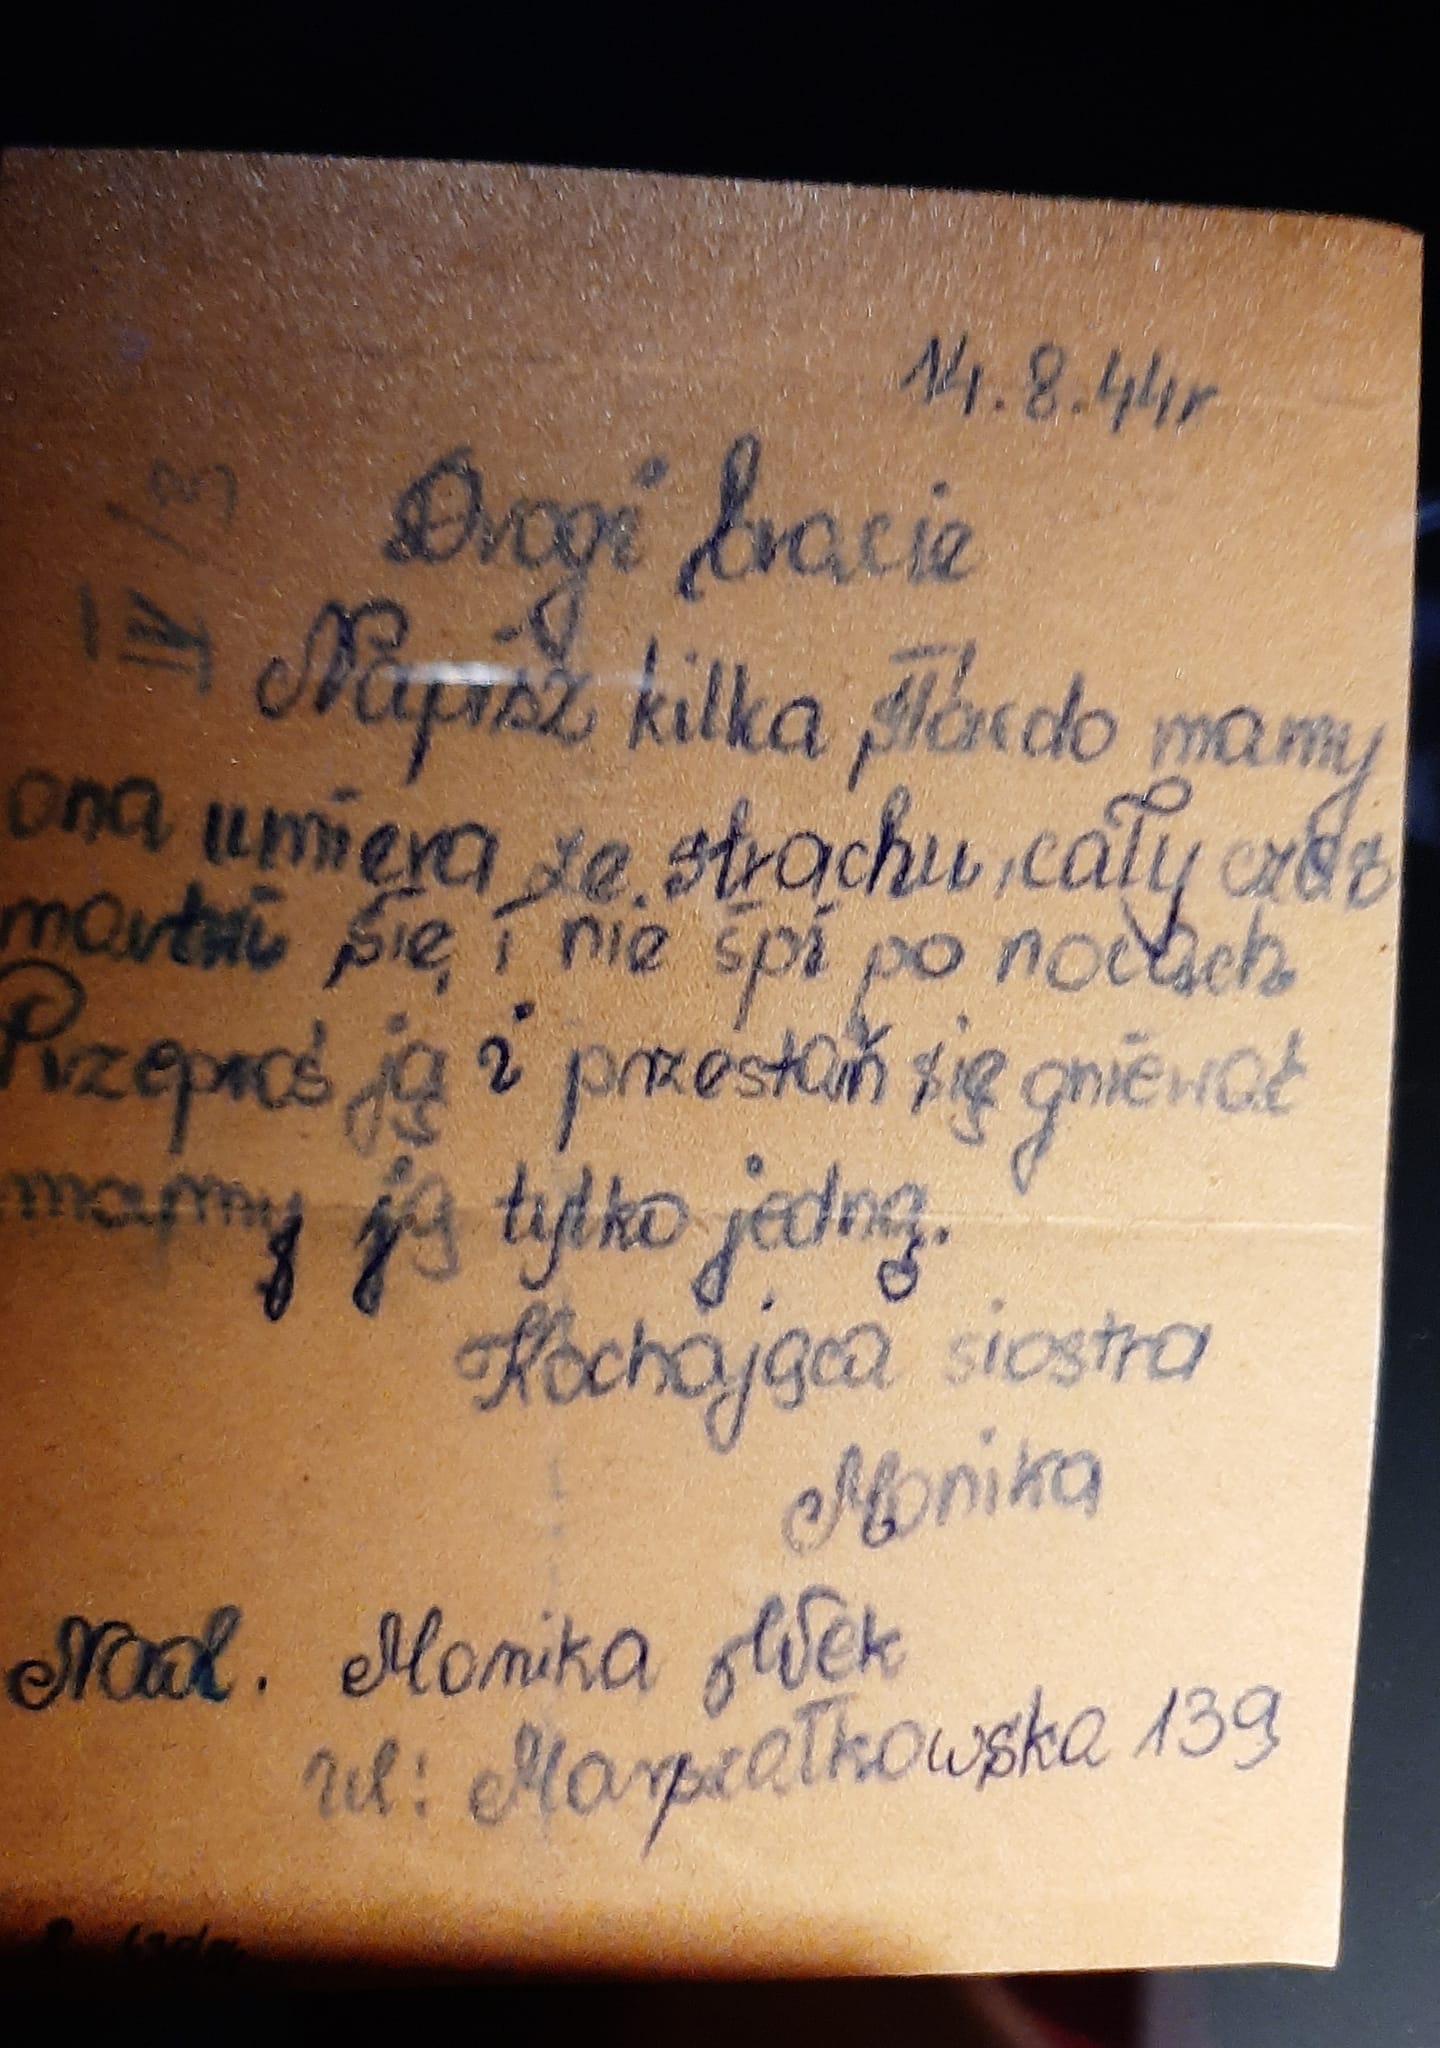 14.8.44r
Drogi bracie
Napisz kilka słów do mamy
ona umiera ze strachu, cały czas
martwi się i nie śpi po nocach
Przeproś ją i przestań się gniewać
mamy ją tylko jedną.
Kochająca siostra
Monika
Nad. Monika
ul: Marszałkowska 139